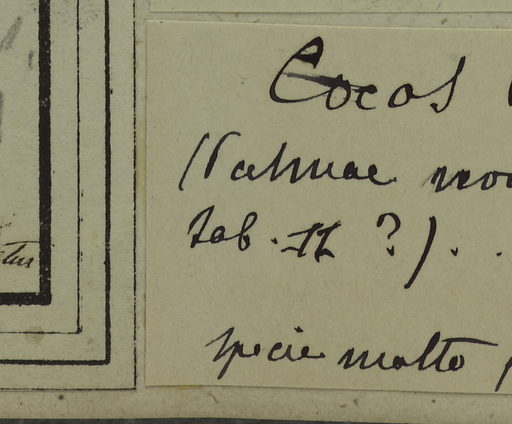 Cocos
(Palmae
tab. II ?) . .
specie molto